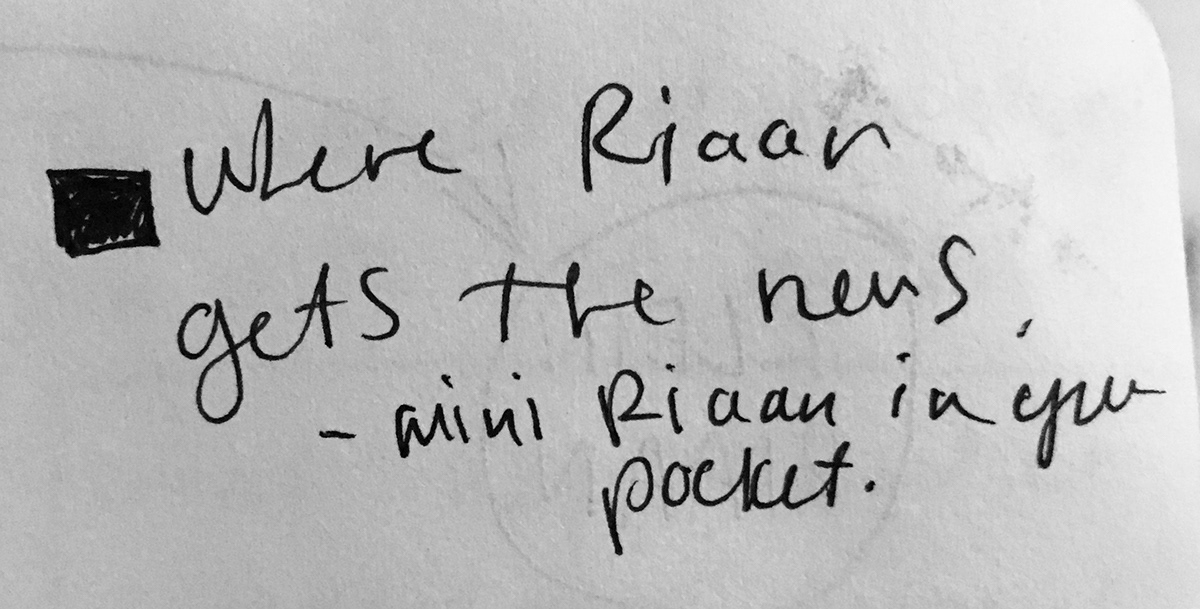 Where Riaan
gets the news.
- mini Riaan in your
pocket.